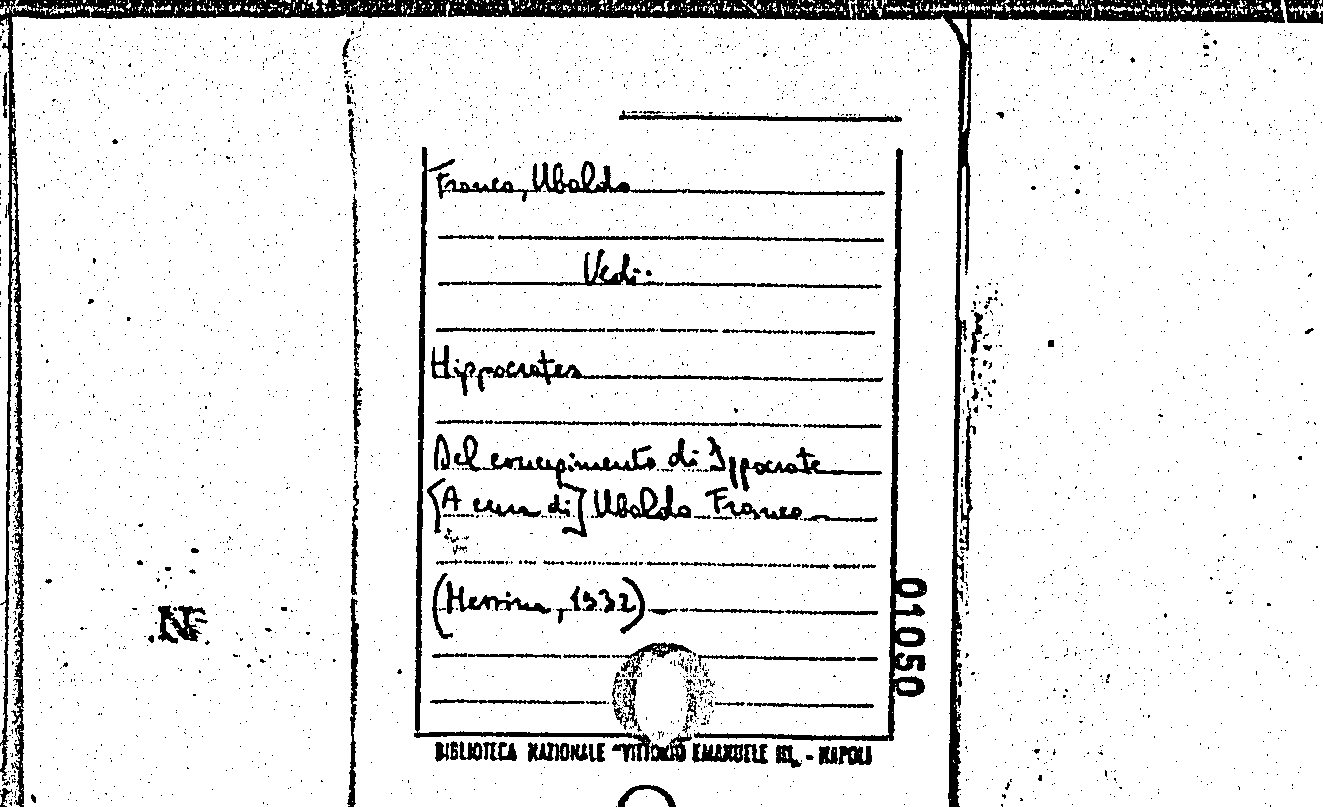 Franco, Ubaldo
Vedi:
Hippocrates
Del concepimento di Ippocrate
[A cura di] Ubaldo Franco
(Messina, 1932)
01050
BIBLIOTECA NAZIONALE "VITTORIO EMANUELE III" - NAPOLI
N